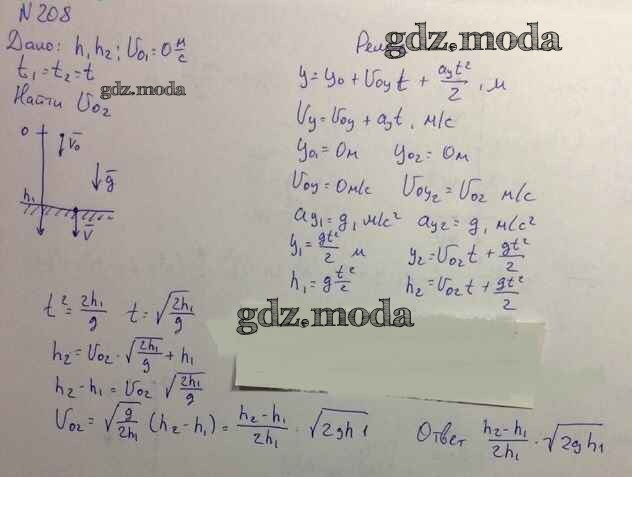 N 208
Дано: h₁ h₂; U₀₁=0 м/с
t₁=t₂=t
Найти U₀₂
gdz.moda
0
V̄₀
ḡ
h₁
V̄
gdz.moda
y=y₀+U₀yt+ayt²/2, м
Uy=U₀y+ayt, м/с
y₀₁=0м y₀₂=0м
U₀y=0м/с U₀y₂=U₀₂ м/с
ay₁=g, м/с² ay₂=g, м/с²
y₁=gt²/2 м y₂=U₀₂t+gt²/2
h₁=g t²/2 h₂=U₀₂t+gt²/2
gdz.moda
t²=2h₁/g t=√(2h₁/g)
h₂=U₀₂·√(2h₁/g)+h₁
h₂-h₁=U₀₂ √(2h₁/g)
U₀₂=√(g/2h₁) (h₂-h₁)=(h₂-h₁)/2h₁·√2gh1
Ответ (h₂-h₁)/2h₁·√2gh₁